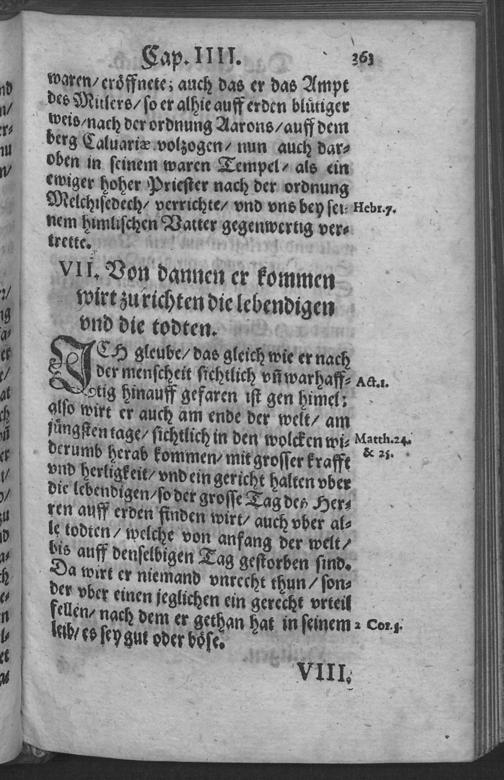 Cap. IIII. 363
waren/ eröffnete; auch das er das Ampt
des Mitlers/ so er alhie auff erden blütiger
weis/ nach der ordnung Aarons/ auff dem
berg Caluariæ volzogen/ nun auch dar-
oben in seinem waren Tempel/ als ein
ewiger hoher Priester nach der ordnung
Melchisedech/ verrichte/ vnd vns bey sei- Hebr.7.
nem himlischen Vatter gegenwertig ver-
trette.
VII. Von dannen er kommen
wirt zu richten die lebendigen
vnd die todten.
ICH gleube/ das gleich wie er nach
der menscheit sichtlich vñ warhaff- Act.1.
tig hinauff gefaren ist gen himel;
also wirt er auch am ende der welt/ am
jüngsten tage/ sichtlich in den wolcken wi- Matth.24.
derumb herab kommen/ mit grosser krafft & 25.
vnd herligkeit/ vnd ein gericht halten vber
die lebendigen/ so der grosse Tag des Her-
ren auff erden finden wirt/ auch vber al-
le todten/ welche von anfang der welt/
bis auff denselbigen Tag gestorben sind.
Da wirt er niemand vnrecht thun/ son-
der vber einen jeglichen ein gerecht vrteil
fellen/ nach dem er gethan hat in seinem 2 Cor.5.
leib/ es sey gut oder böse.
VIII.